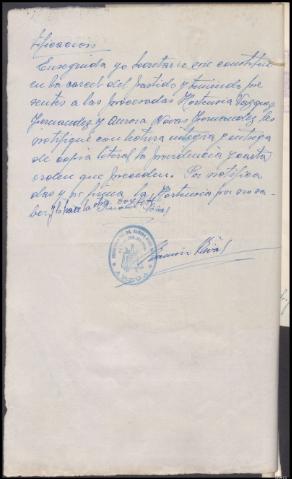 tificacion
Enseguida yo Secretario me constitui
en la carcel del partido y teniendo pre
sentes a las procesadas Hortensia Vazquez
Fernandez y Aurora Navas Fernandez les
notifiqué con lectura integra y entrega
de copia literal la providencia y carta
orden que preceden. Por notifica
das y no firma la Hortensia por no sa
ber, y lo hace la otra doy fé
Ramón Rivas